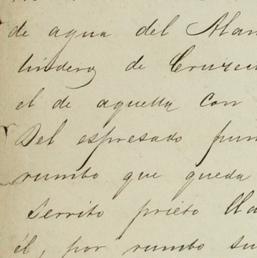 de agua del Alan
lindero de Cruzen
el de aquella con
del espresado pun
rumbo que queda
serrito prieto lla
él, por rumbo su